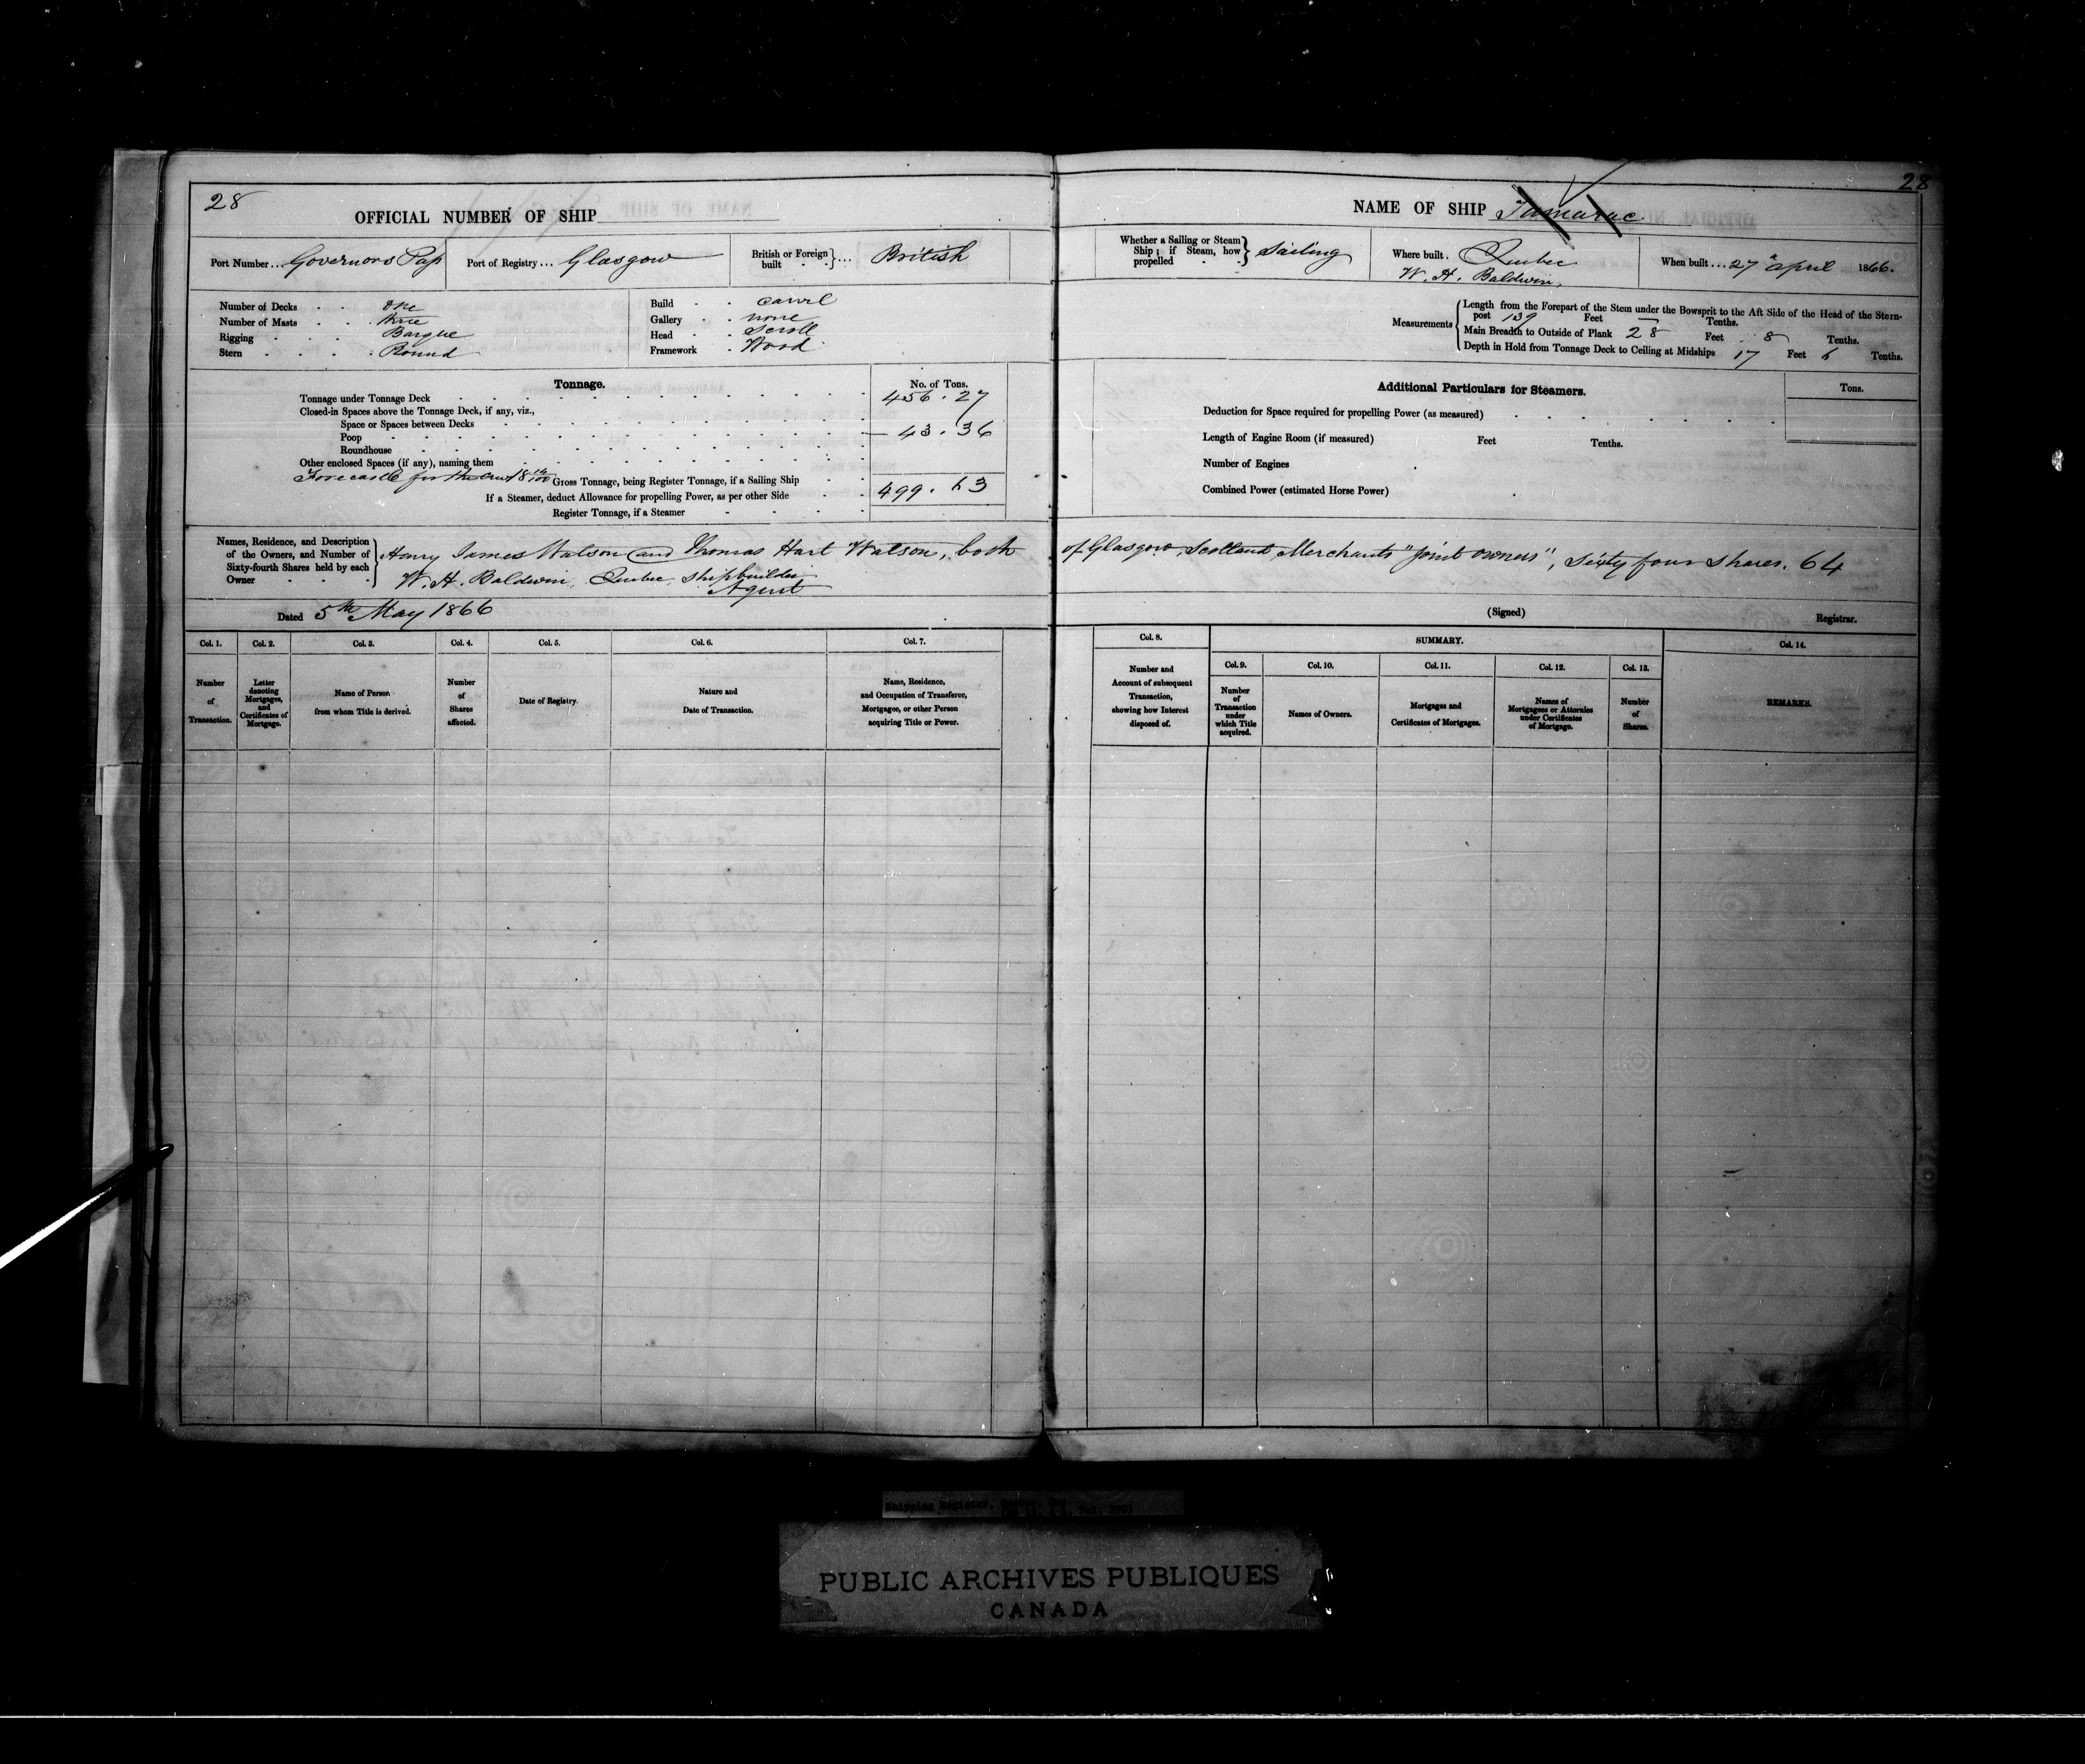 28
OFFICIAL NUMBER OF SHIP
Port Number... Governors Pass
Port of Registry... Glasgow
British or Foreign built } ... British
Number of Decks . . one
Number of Masts . . three
Rigging . . . Barque
Stern . . . . Round
Build . . carvel
Gallery . . none
Head . . Scroll
Framework . Wood
Tonnage.
No. of Tons.
Tonnage under Tonnage Deck 456.27
Closed-in Spaces above the Tonnage Deck, if any, viz.,
Space or Spaces between Decks
Poop 43.36
Roundhouse
Other enclosed Spaces (if any), naming them
Forecastle for the Crew 18 14/100
Gross Tonnage, being Register Tonnage, if a Sailing Ship 499.63
If a Steamer, deduct Allowance for propelling Power, as per other Side
Register Tonnage, if a Steamer
Names, Residence, and Description of the Owners, and Number of Sixty-fourth Shares held by each Owner
Henry James Watson and Thomas Hart Watson, both
W. H. Baldwin, Quebec, shipbuilder
Agent
Dated 5th May 1866
Col. 1. Col. 2. Col. 3. Col. 4. Col. 5. Col. 6. Col. 7.
Number of Transaction.
Letter denoting Mortgages, and Certificates of Mortgage.
Name of Person from whom Title is derived.
Number of Shares affected.
Date of Registry.
Nature and Date of Transaction.
Name, Residence, and Occupation of Transferee, Mortgagee, or other Person acquiring Title or Power.
28
NAME OF SHIP Tamarac
Whether a Sailing or Steam Ship; if Steam, how propelled } Sailing
Where built . Quebec
W. H. Baldwin,
When built ... 27 April 1866.
Measurements
Length from the Forepart of the Stem under the Bowsprit to the Aft Side of the Head of the Stern-
post 139 Feet — Tenths.
Main Breadth to Outside of Plank 28 Feet 8 Tenths.
Depth in Hold from Tonnage Deck to Ceiling at Midships 17 Feet 6 Tenths.
Additional Particulars for Steamers.
Tons.
Deduction for Space required for propelling Power (as measured)
Length of Engine Room (if measured) Feet Tenths.
Number of Engines
Combined Power (estimated Horse Power)
of Glasgow, Scotland Merchants "Joint owners", Sixty four Shares. 64
(Signed) Registrar.
Col. 8. SUMMARY. Col. 14.
Col. 9. Col. 10. Col. 11. Col. 12. Col. 13.
Number and Account of subsequent Transaction, showing how Interest disposed of.
Number of Transaction under which Title acquired.
Names of Owners.
Mortgages and Certificates of Mortgages.
Names of Mortgagees or Attornies under Certificates of Mortgage.
Number of Shares.
REMARKS.
Shipping Register,
PUBLIC ARCHIVES PUBLIQUES
CANADA